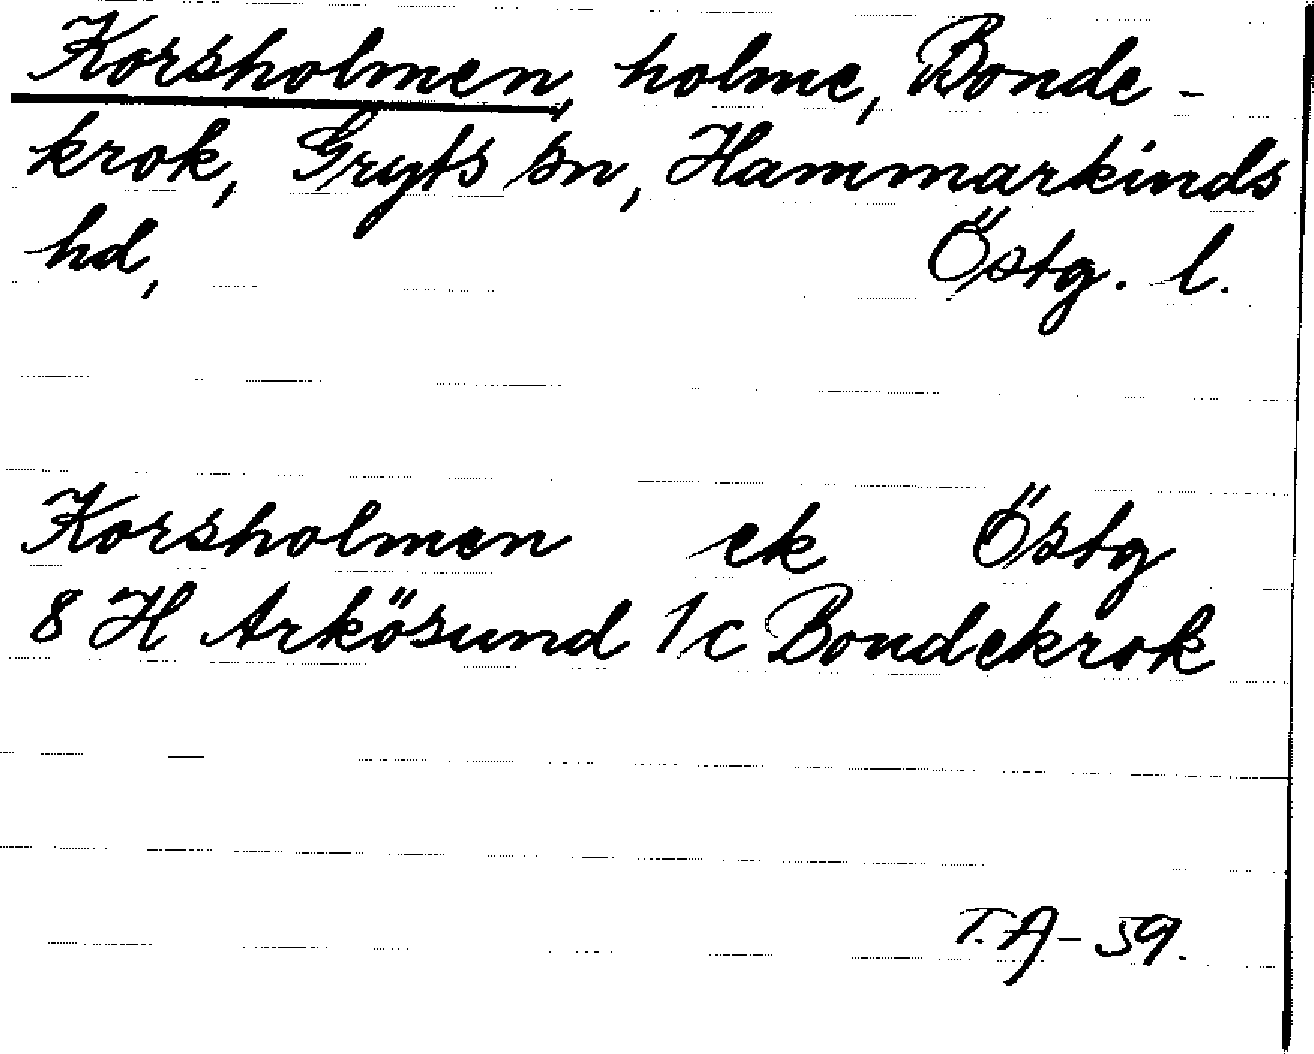 Korsholmen, holme, Bonde-
krok, Gryts sn, Hammarkinds
hd, Östg. l.
Korsholmen ek Östg
8 H Arkösund 1c Bondekrok
T.A-59.